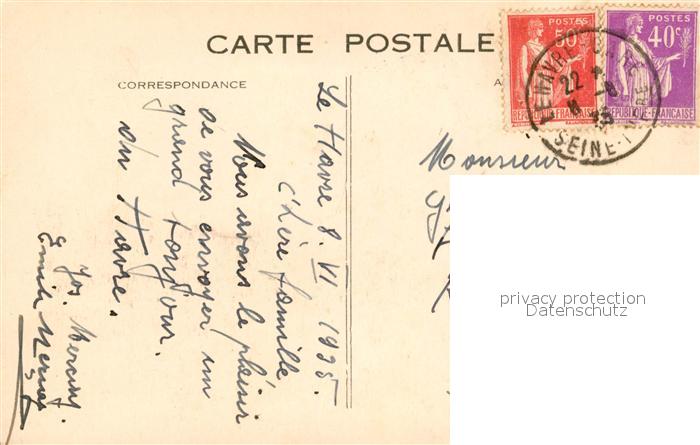 CARTE POSTALE
CORRESPONDANCE
POSTES
50c
RÉPUBLIQUE FRANÇAISE
POSTES
40c
RÉPUBLIQUE FRANÇAISE
LE HAVRE
22
SEINE
Le Havre 8. VI 1935.
Chère famille
Nous avons le plaisir
de vous envoyer un
grand bonjour
du Havre.
Jos.
Emile
Monsieur
privacy protection
Datenschutz